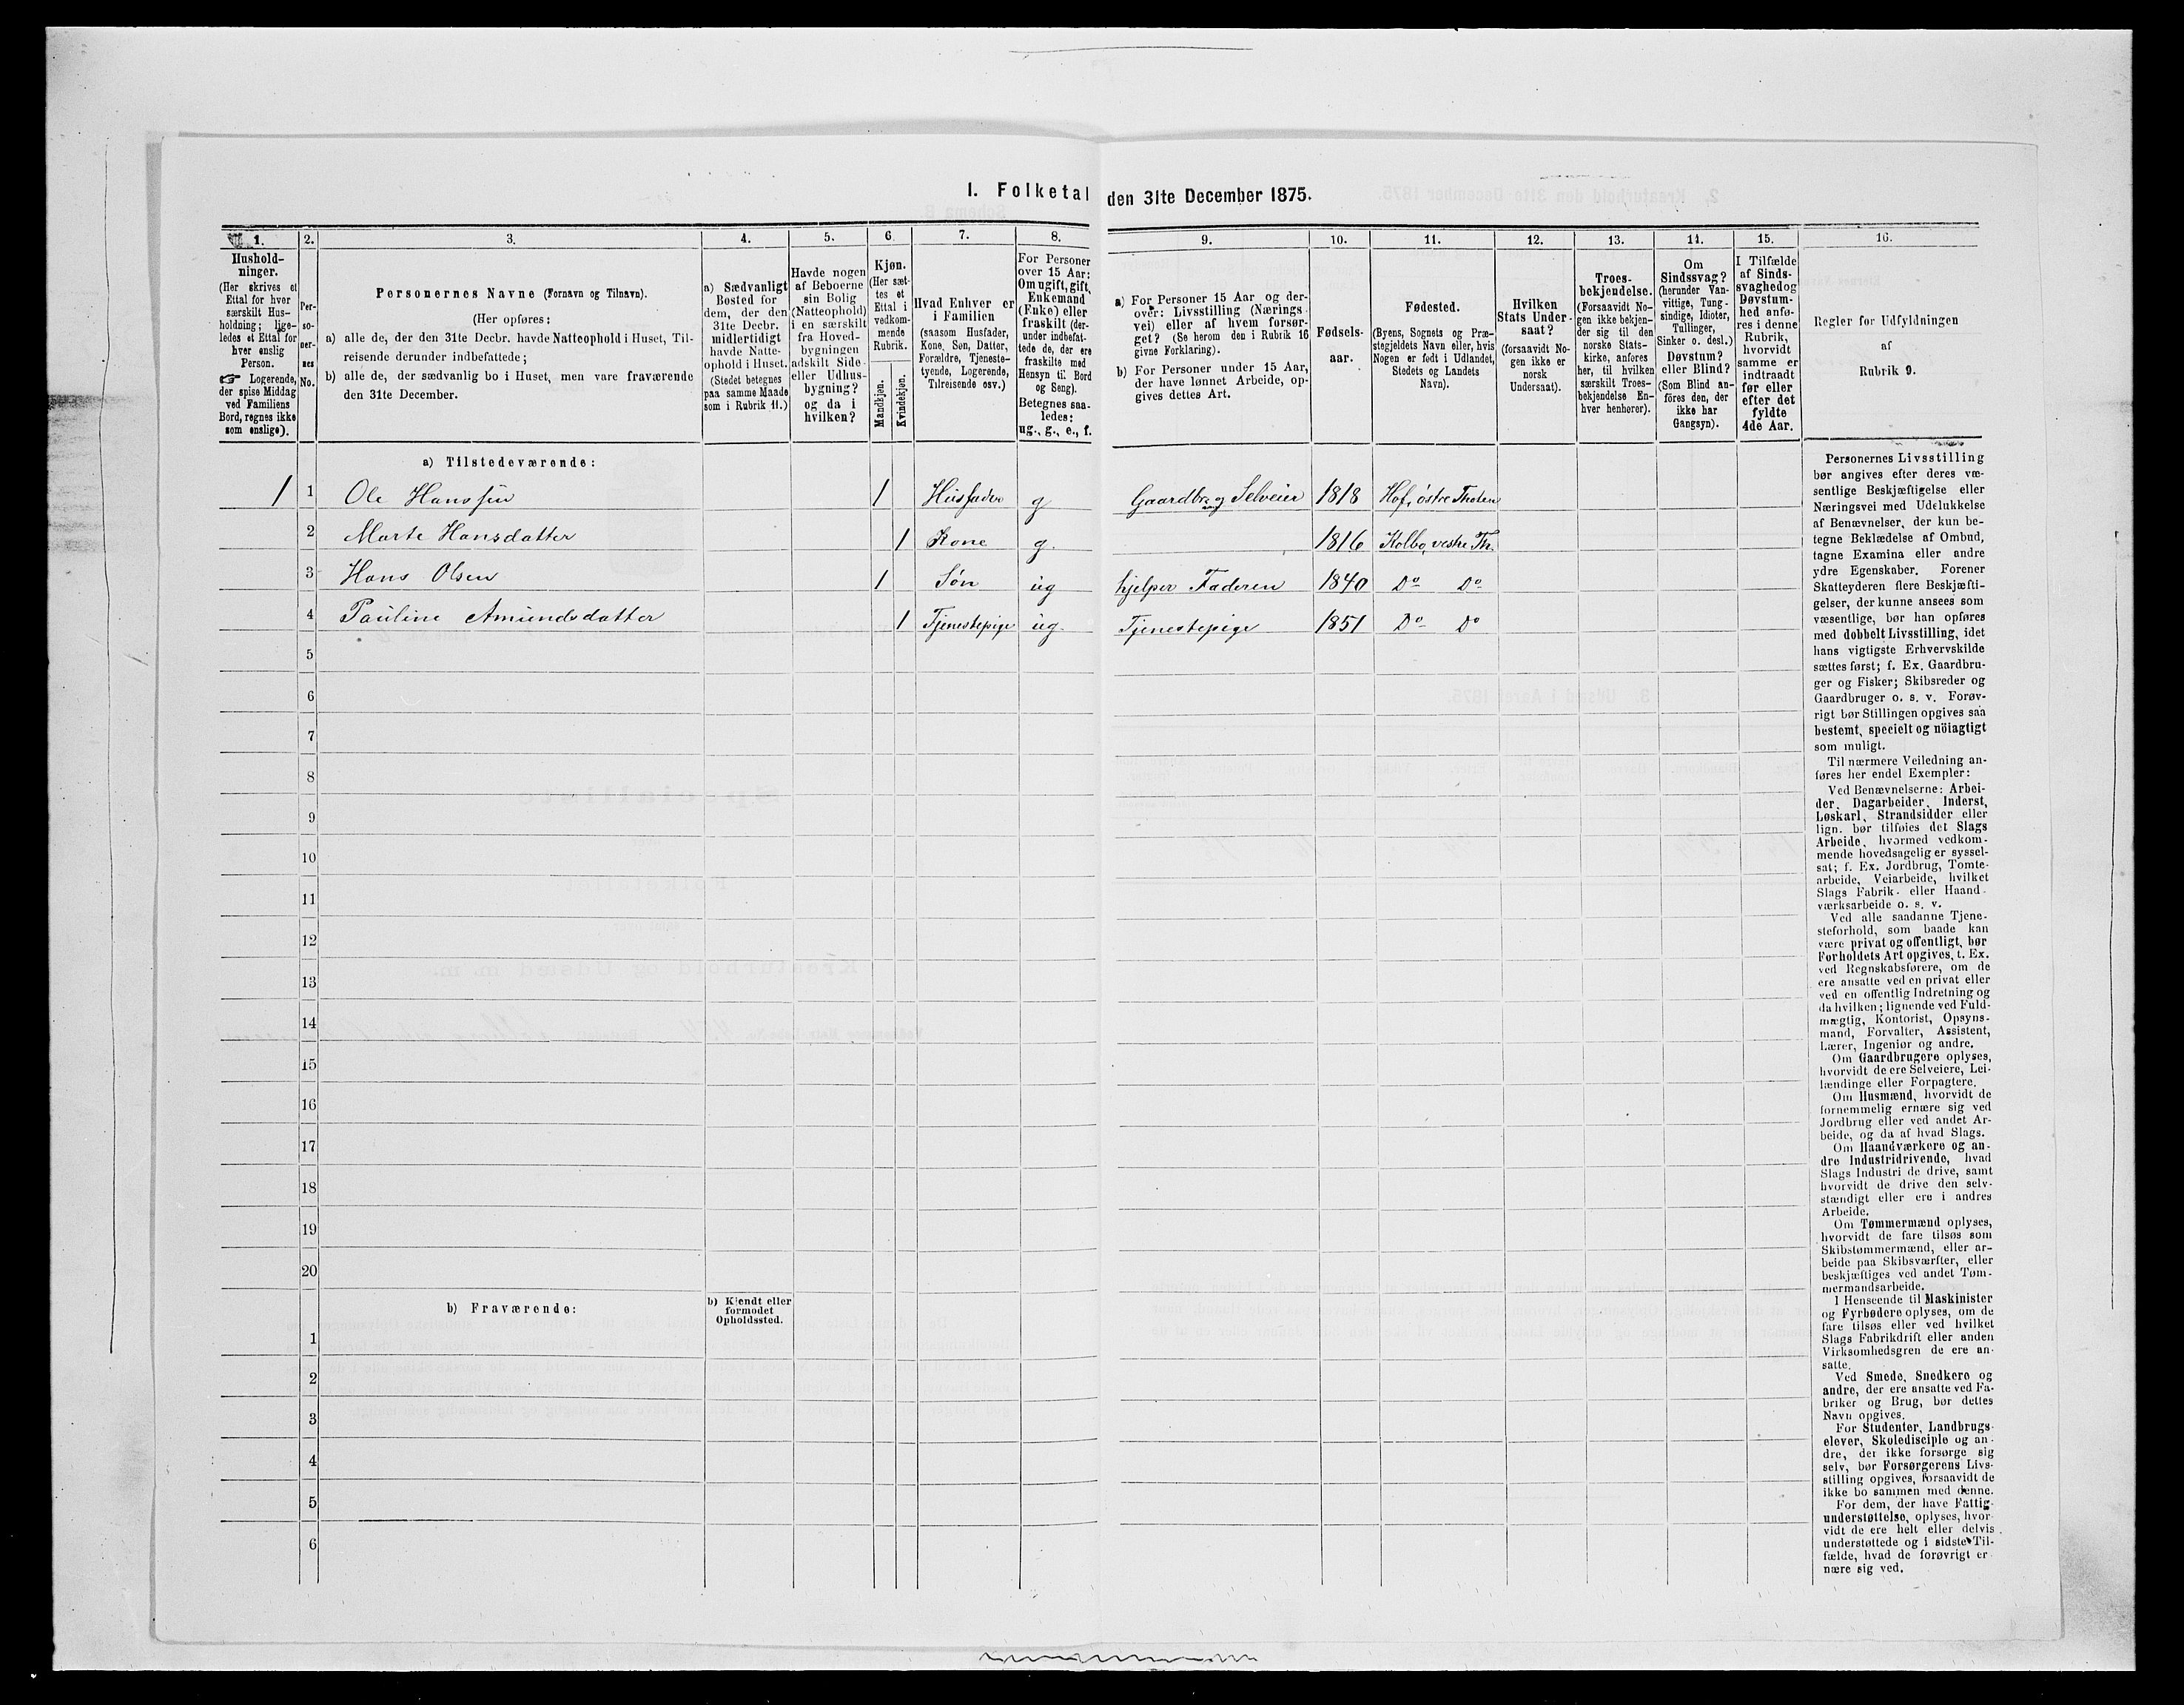 1. Folketal den 31te December 1875.
1.
2.
3.
4.
5.
6.
7.
8.
9.
10.
11.
12.
13.
14.
15.
16.
Hushold-
ninger.
(Her skrives et
Ettal for hver
særskilt Hus-
holdning; lige-
ledes et Ettal for
hver enslig
Person.
☞ Logerende,
der spise Middag
ved Familiens
Bord, regnes ikke
som enslige).
Per-
so-
ner-
nes
No.
Personernes Navne (Fornavn og Tilnavn).
(Her opføres:
a) alle de, der den 31te Decbr. havde Natteophold i Huset, Til-
reisende derunder indbefattede;
b) alle de, der sædvanlig bo i Huset, men vare fraværende
den 31te December.
a) Sædvanligt
Bosted for
dem, der den
31te Decbr.
midlertidigt
havde Natte-
ophold i Huset.
(Stedet betegnes
paa samme Maade
som i Rubrik 11.)
Havde nogen
af Beboerne
sin Bolig
(Natteophold)
i en særskilt
fra Hoved-
bygningen
adskilt Side-
eller Udhus-
bygning?
og da i
hvilken?
Kjøn.
(Her sæt-
tes et
Ettal i
vedkom-
mende
Rubrik.
Mandkjøn.
Kvindekjøn.
Hvad Enhver er
i Familien
(saasom Husfader,
Kone, Søn, Datter,
Forældre, Tjeneste-
tyende, Logerende,
Tilreisende osv.)
For Personer
over 15 Aar:
Om ugift, gift,
Enkemand
(Enke) eller
fraskilt (der-
under indbefat-
tede de, der ere
fraskilte med
Hensyn til Bord
og Seng).
Betegnes saa-
ledes:
ug., g., e., f.
a) For Personer 15 Aar og der-
over: Livsstilling (Nærings-
vei) eller af hvem forsør-
get? (Se herom den i Rubrik 16
givne Forklaring).
b) For Personer under 15 Aar,
der have lønnet Arbeide, op-
gives dettes Art.
Fødsels-
aar.
Fødested.
(Byens, Sognets og Præ-
stegjeldets Navn eller, hvis
Nogen er født i Udlandet,
Stedets og Landets
Navn).
Hvilken
Stats Under-
saat?
(forsaavidt No-
gen ikke er
norsk
Undersaat).
Troes-
bekjendelse.
(Forsaavidt No-
gen ikke bekjen-
der sig til den
norske Stats-
kirke, anføres
her, til hvilken
særskilt Troes-
bekjendelse En-
hver henhører).
Om
Sindssvag?
(herunder Van-
vittige, Tung-
sindige, Idioter,
Tullinger,
Sinker o. desl.)
Døvstum?
eller Blind?
(Som Blind an-
föres den, der
ikke har
Gangsyn).
I Tilfælde
af Sinds-
svaghed og
Døvstum-
hed anfø-
res i denne
Rubrik,
hvorvidt
samme er
indtraadt
før eller
efter det
fyldte
4de Aar.
Regler for Udfyldningen
af
Rubrik 9.
a) Tilstedeværende:
1 1 Ole Hanssen 1 Husfader g Gaardbr. og Selveier 1818 Hof, östre Thoten
2 Marte Hansdatter 1 Kone g. 1816 Kolbo, vestre Th.
3 Hans Olsen 1 Søn ug hjelper Faderen 1840 Do Do
4 Pauline Amundsdatter 1 Tjenestepige ug. Tjenestepige 1851 Do Do
5
6
7
8
9
10
11
12
13
14
15
16
17
18
19
20
b) Fraværende:
b) Kjendt eller
formodet
Opholdssted.
1
2
3
4
5
6
Personernes Livsstilling
bør angives efter deres væ-
sentlige Beskjæftigelse eller
Næringsvei med Udelukkelse
af Benævnelser, der kun be-
tegne Beklædelse af Ombud,
tagne Examina eller andre
ydre Egenskaber. Forener
Skatteyderen flere Beskjæfti-
gelser, der kunne ansees som
væsentlige, bør han opføres
med dobbelt Livsstilling, idet
hans vigtigste Erhvervskilde
sættes først; f. Ex. Gaardbru-
ger og Fisker; Skibsreder og
Gaardbruger o. s. v. Forøv-
rigt bør Stillingen opgives saa
bestemt, specielt og nöiagtigt
som muligt.
Til nærmere Veiledning an-
føres her endel Exempler:
Ved Benævnelserne: Arbei-
der, Dagarbeider, Inderst,
Løskarl, Strandsidder eller
lign. bør tilføies det Slags
Arbeide, hvormed vedkom-
mende hovedsagelig er syssel-
sat; f. Ex. Jordbrug, Tomte-
arbeide, Veiarbeide, hvilket
Slags Fabrik- eller Haand-
værksarbeide o. s. v.
Ved alle saadanne Tjene-
steforhold, som baade kan
være privat og offentligt, bør
Forholdets Art opgives, t. Ex.
ved Regnskabsførere, om de
ere ansatte ved en privat eller
ved en offentlig Indretning og
da hvilken; lignende ved Fuld-
mægtig, Kontorist, Opsyns-
mand, Forvalter, Assistent,
Lærer, Ingeniør og andre.
Om Gaardbrugere oplyses,
hvorvidt de ere Selveiere, Lei-
lændinge eller Forpagtere.
Om Husmænd, hvorvidt de
fornemmelig ernære sig ved
Jordbrug eller ved andet Ar-
beide, og da af hvad Slags.
Om Haandværkere og an-
dre Industridrivende, hvad
Slags Industri de drive, samt
hvorvidt de drive den selv-
stændigt eller ere i andres
Arbeide.
Om Tømmermænd oplyses,
hvorvidt de fare tilsøs som
Skibstømmermænd, eller ar-
beide paa Skibsværfter, eller
beskjæftiges ved andet Tøm-
mermandsarbeide.
I Henseende til Maskinister
og Fyrbødere oplyses, om de
fare tilsøs eller ved hvilket
Slags Fabrikdrift eller anden
Virksomhedsgren de ere an-
satte.
Ved Smede, Snedkere og
andre, der ere ansatte ved Fa-
briker og Brug, bør dettes
Navn opgives.
For Studenter, Landbrugs-
elever, Skoledisciple og an-
dre, der ikke forsørge sig
selv, bør Forsørgerens Livs-
stilling opgives, forsaavidt de
ikke bo sammen med denne.
For dem, der have Fattig-
understøttelse, oplyses, hvor-
vidt de ere helt eller delvis
understøttede og i sidste Til-
fælde, hvad de forøvrigt er-
nære sig ved.